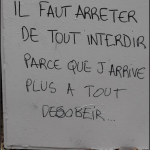 IL FAUT ARRETER
DE TOUT INTERDIR
PARCE QUE J'ARRIVE
PLUS A TOUT
DESOBEIR...